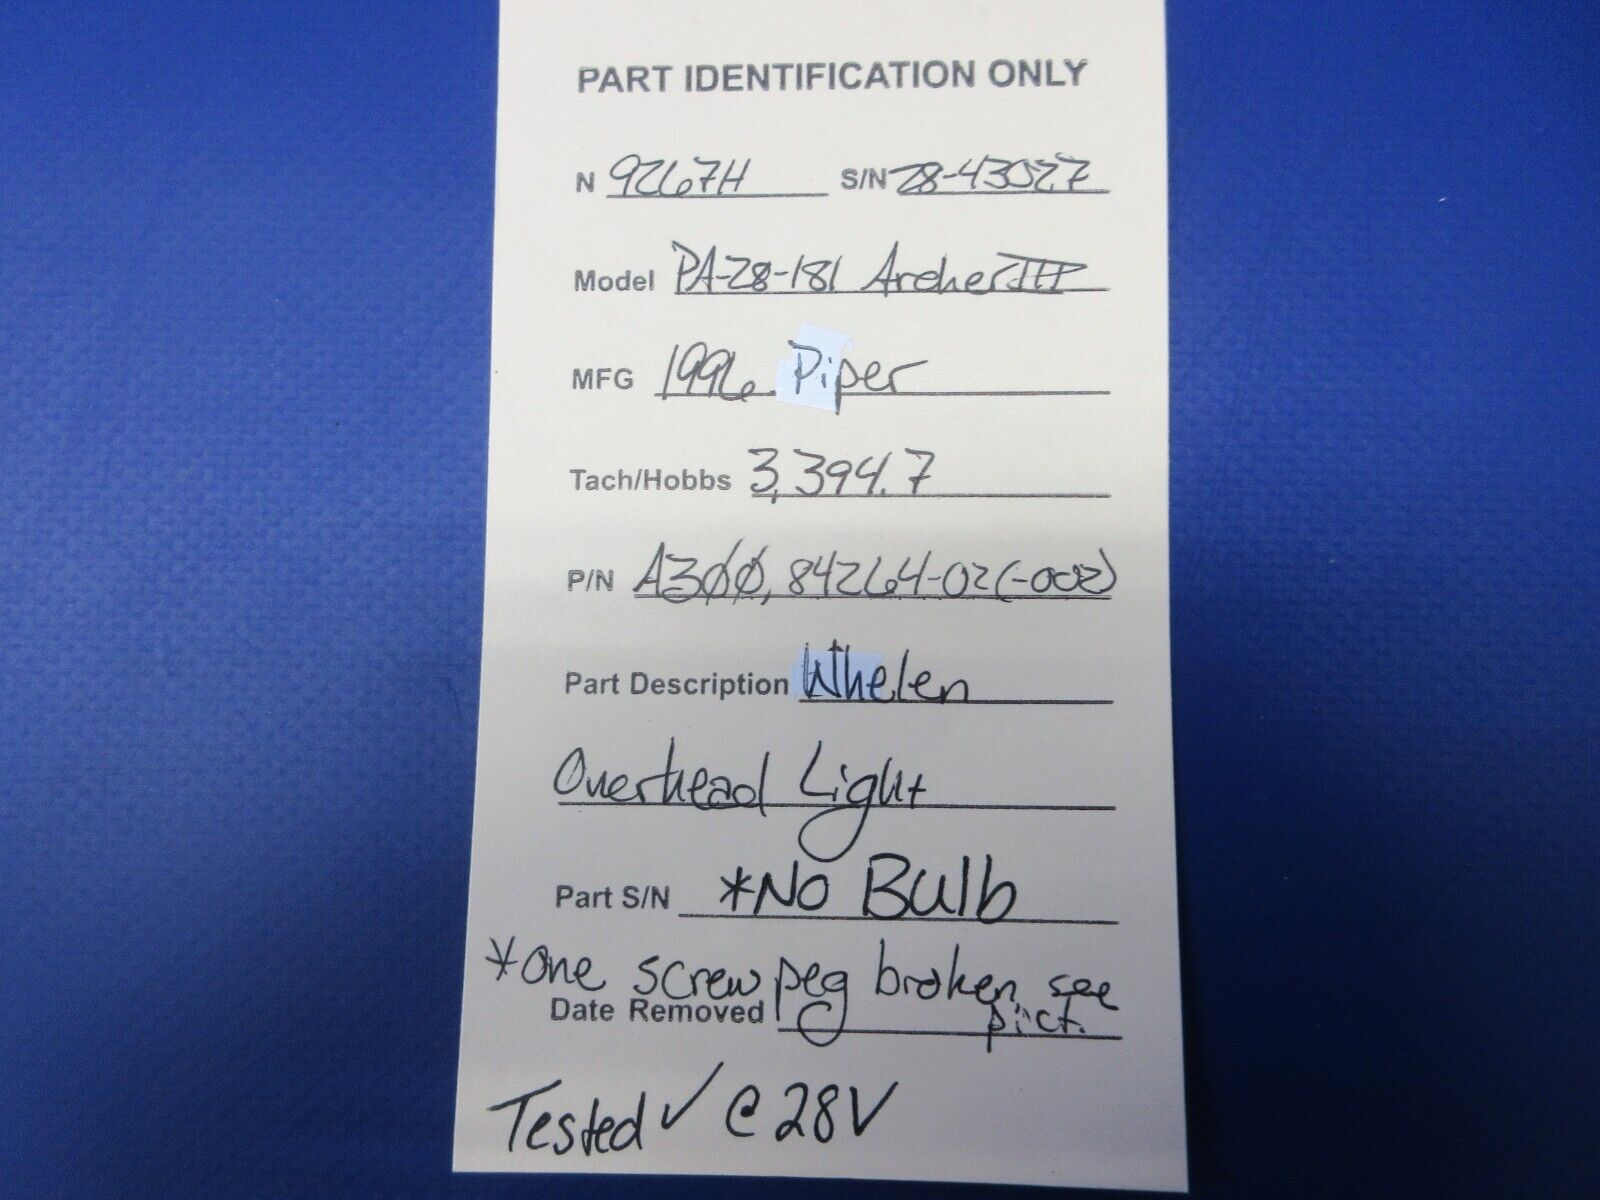 PART IDENTIFICATION ONLY
N 9267H S/N 28-43027
Model PA-28-181 Archer III
MFG 1996 Piper
Tach/Hobbs 3,394.7
P/N A300, 84264-02(-002)
Part Description Whelen
Overhead Light
Part S/N *No Bulb
*One screw peg broken, see
Date Removed pict.
Tested ✓ @ 28V